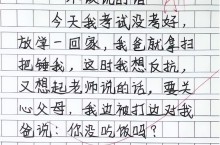 今天我考试没考好，
放学一回家，我爸就拿扫
把锤我，这时我想反抗，
又想起老师说的话，要关
心父母，我边被打边对我
爸说：你没吃饭吗？